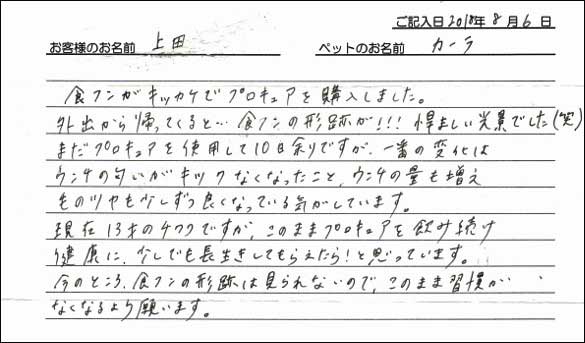 ご記入日 2018年 8月 6日
お客様のお名前 上田 ペットのお名前 カーラ
食フンがキッカケでプロキュアを購入しました。
外出から帰ってくると… 食フンの形跡が!!! 悍ましい光景でした(笑)
まだプロキュアを使用して10日余りですが、一番の変化は
ウンチの匂いがキツクなくなったこと、ウンチの量も増え
毛のツヤも少しずつ良くなっている気がしています。
現在13才のチワワですが、このままプロキュアを飲み続け
健康に、少しでも長生きしてもらえたら!と思っています。
今のところ、食フンの形跡は見られないので、このまま習慣が
なくなるよう願います。